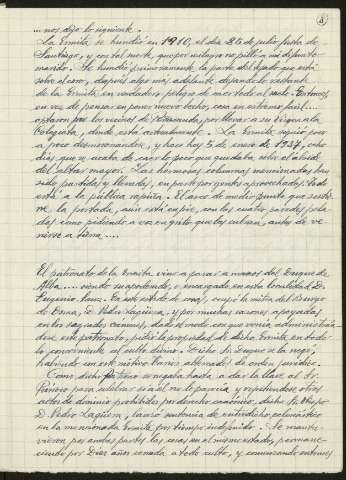 8
... nos dejo lo siguiente.
La Ermita se hundió en 1910, el dia 25 de julio fiesta de
Santiago, y con tal suerte, que por milagro no pilló a mi difunto
marido. Se hundió primeramente la parte del tejado que está
sobre el coro, después algo más adelante, dejando lo restante
de la Ermita en verdadero peligro de caer todo al suelo. Entonces
en vez de pensar en poner nuevo techo, cosa en extremo facil...
optaron por los vecinos de, por llevar a su Virgen a la
Colegiata, donde está actualmente. La Ermita siguió poco
a poco desmoronandose, y hace hoy 5 de enero de 1937, ocho
días que se acaba de caer lo poco que quedaba sobre el abside
del altar mayor. Las hermosas columnas mencionadas han
sido partidas y llevadas, en parte por gentes aprovechadas: todo
está a la publica rapiña. El arco de medio punto que sostie
ne la portada, aun está en pie, con las cuatro paredes pela
das como pidiendo a voz en grito que las cubran, antes de ve
nirse a tierra....
El patronato de la Ermita vino a parar a manos del Duque de
Alba..... siendo su apoderado, o encargado en esta localidad D.
Eugenio Sanz. En este estado de cosas, surgió la visita del Obispo
de Osma, D. Pedro Lagüera, y por muchas razones apoyadas
en los sagrados canones, dado el modo con que venía administrán
dose este patronato, pidió la propiedad de dicha Ermita en todo
lo conveniente al culto divino. Dicho Sr. Duque a lo negó,
habiendo con este motivo varios altercados de orden jurídico.
Como dicho Patrono se negara hasta a dar la llave al Sr.
Párroco para celebrar cuando no le parecía y repitiendose otros
actos de dominio prohibidos por derecho canónico, dicho Sr. Obispo
D. Pedro Lagüera, lanzó sentencia de entredicho eclesiástico
en la mencionada Ermita por tiempo indefinido. Se mantu-
vieron por ambas partes las cosas en el mismo estado, permane-
ciendo por Diez años cerrada a todo culto, y comenzando entonces